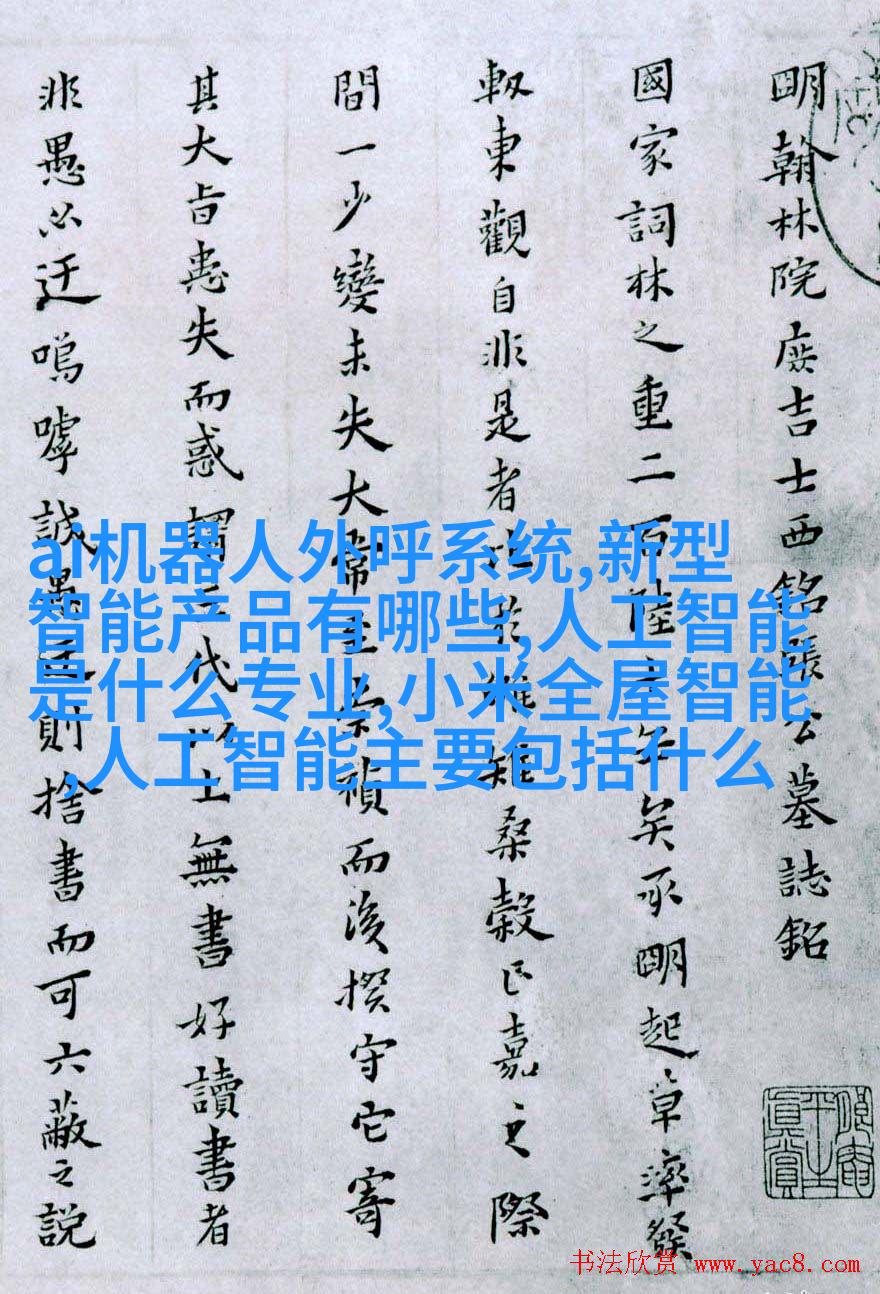 明翰林院庶吉士西銘張公墓誌銘
國家詞林之重二百陸年矣承明起草率發
軔東觀自非是者桑穀正嘉之際
間一少變未失大常至崇禎而後揆守它寄
其大旨患失而惑謂三代以上無書好讀書者
非愚必迂嗚嘑誠愚且迂則捨書而可六蔽之說
ai机器人外呼系统,新型
智能产品有哪些,人工智能
是什么专业,小米全屋智能
,人工智能主要包括什么
书法欣赏 www.yac8.com